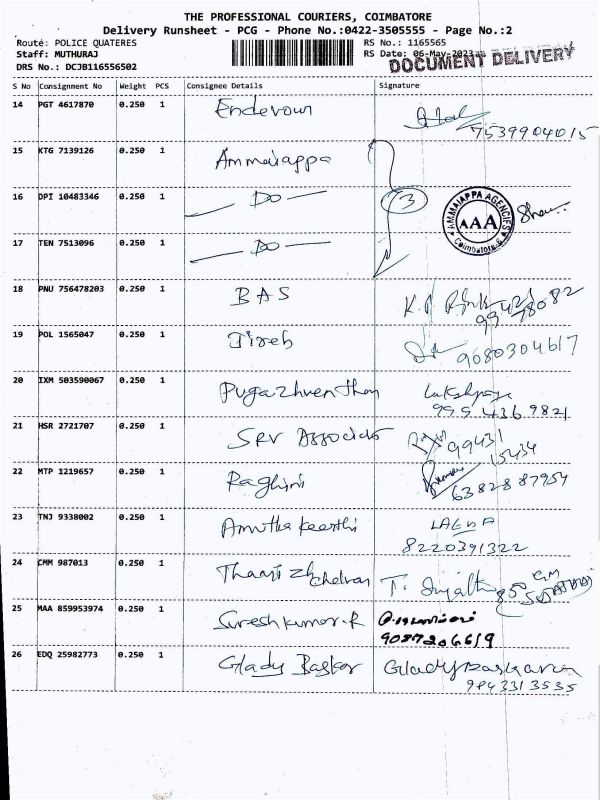 THE PROFESSIONAL COURIERS, COIMBATORE
Delivery Runsheet - PCG - Phone No.:0422-3505555 - Page No.:2
Route: POLICE QUATERES RS No.: 1165565
Staff: MUTHURAJ RS Date: 06-May-2023
DRS No.: DCJB116556502 DOCUMENT DELIVERY
S No Consignment No Weight PCS Consignee Details Signature
14 PGT 4617870 0.250 1 Endevour
7539904015
15 KTG 7139126 0.250 1 Ammaiappa
16 DPI 10483346 0.250 1 — Do — 3
AMMAIAPPA AGENCIES
AAA
Coimbatore
17 TEN 7513096 0.250 1 — Do —
18 PNU 756478203 0.250 1 BAS
19 POL 1565047 0.250 1 Jireh
9080304617
20 IXM 503590067 0.250 1 Pugazhventhan
995 436 9821
21 HSR 2721707 0.250 1 SRV Associats
99431
15434
22 MTP 1219657 0.250 1 Raghini
6382887954
23 TNJ 9338002 0.250 1 Amutha Keerthi
8220391322
24 CMM 987013 0.250 1
25 MAA 859953974 0.250 1 Sureshkumar.R
9087206619
26 EDQ 25982773 0.250 1 Glady Baskar
9843313535